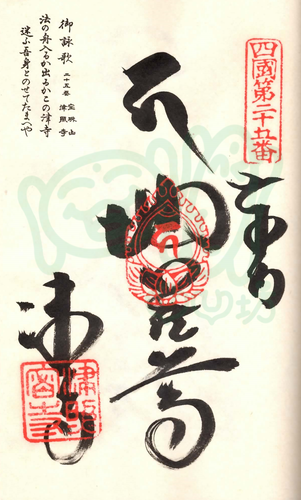 四國第二十五番
奉納
地蔵尊
津寺
御詠歌
二十五番
宝珠山
津照寺
法の舟入るか出るかこの津寺
迷ふ吾身をのせてたまへや